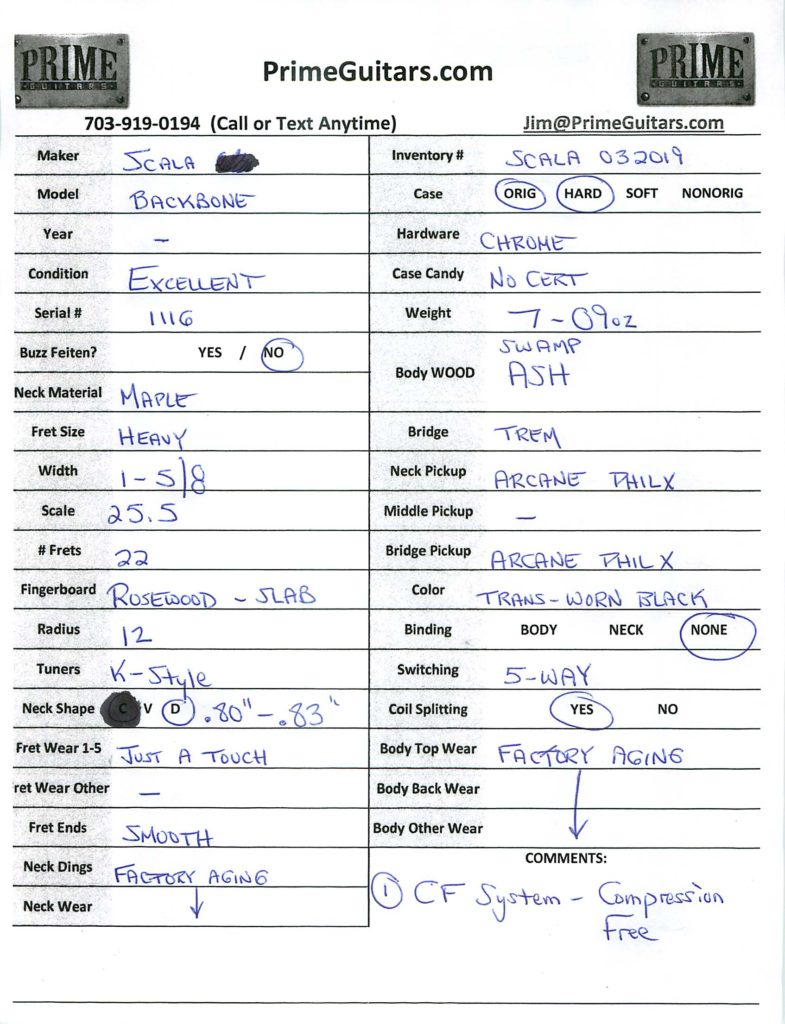 PRIME
GUITARS
PrimeGuitars.com
PRIME
GUITARS
703-919-0194 (Call or Text Anytime)
Jim@PrimeGuitars.com
Maker SCALA
Model BACKBONE
Year –
Condition EXCELLENT
Serial # 1116
Buzz Feiten? YES / NO
Neck Material MAPLE
Fret Size HEAVY
Width 1-5/8
Scale 25.5
# Frets 22
Fingerboard ROSEWOOD - SLAB
Radius 12
Tuners K-Style
Neck Shape C V D .80"-.83"
Fret Wear 1-5 JUST A TOUCH
ret Wear Other –
Fret Ends SMOOTH
Neck Dings FACTORY AGING
Neck Wear ↓
Inventory # SCALA 032019
Case ORIG HARD SOFT NONORIG
Hardware CHROME
Case Candy NO CERT
Weight 7-09oz
SWAMP
Body WOOD ASH
Bridge TREM
Neck Pickup ARCANE PHILX
Middle Pickup –
Bridge Pickup ARCANE PHILX
Color TRANS-WORN BLACK
Binding BODY NECK NONE
Switching 5-WAY
Coil Splitting YES NO
Body Top Wear FACTORY AGING
Body Back Wear
Body Other Wear ↓
COMMENTS:
① CF System - Compression
Free